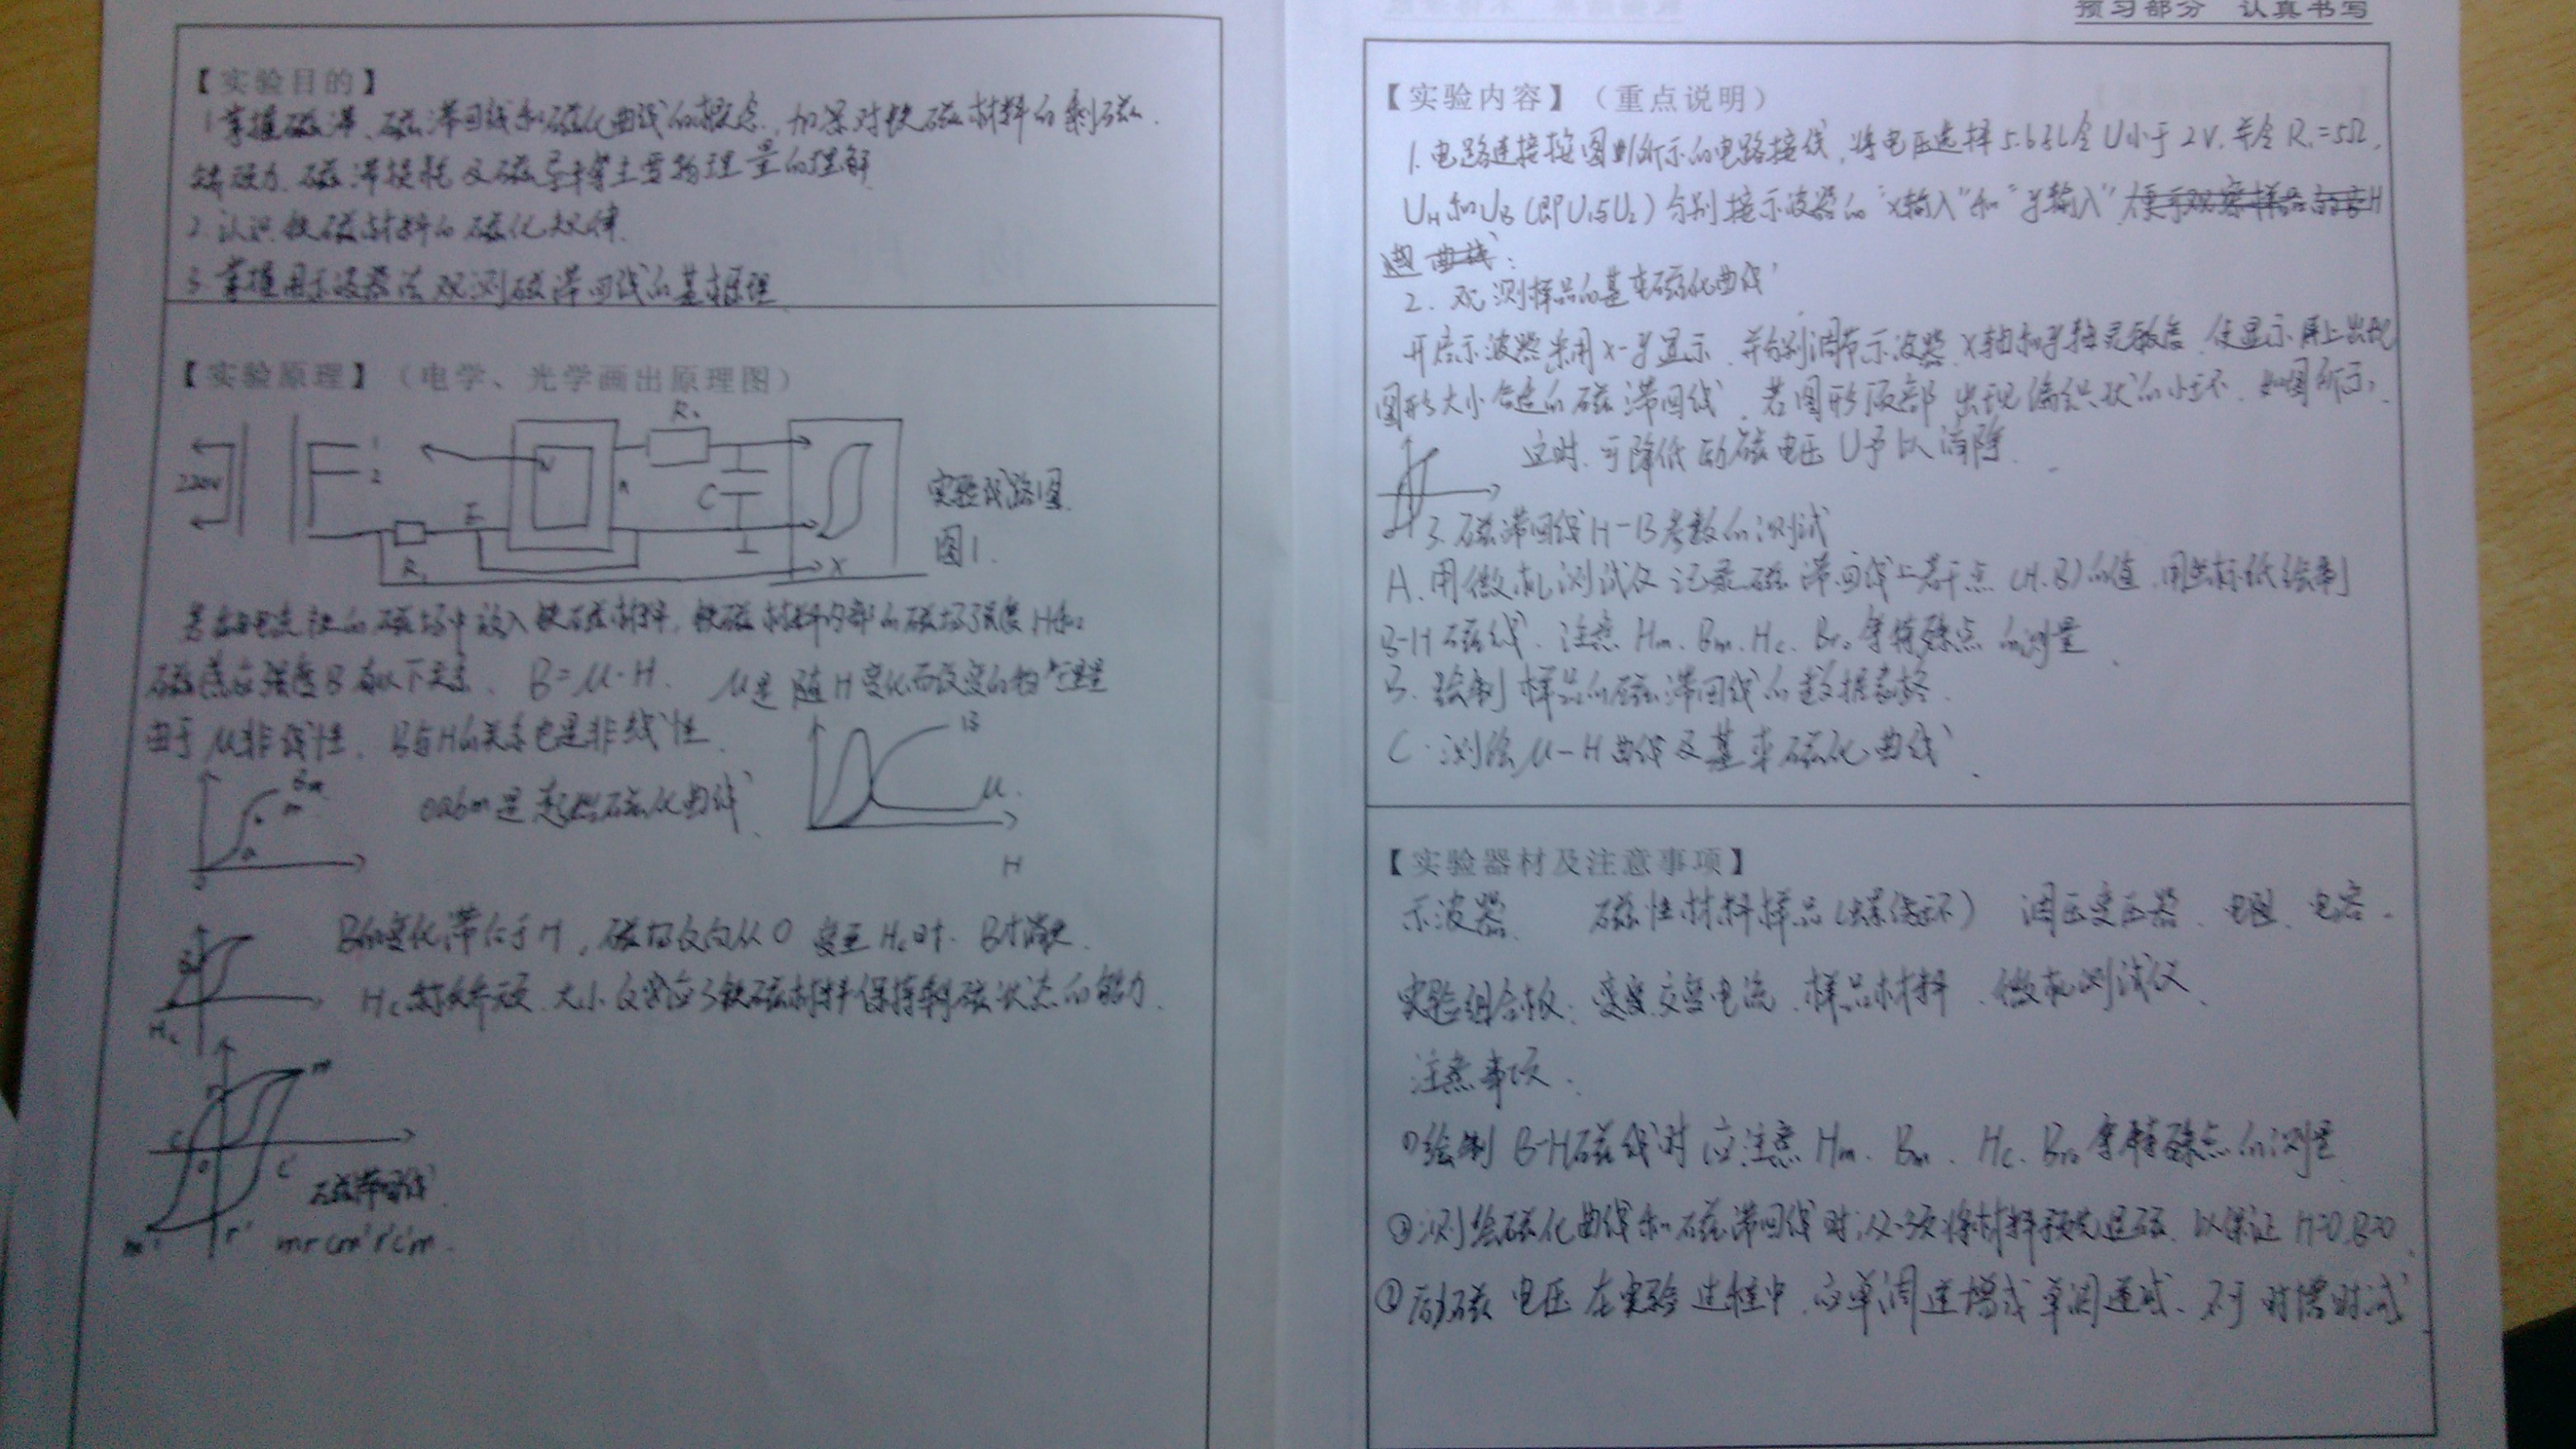 【实验目的】
1.掌握磁滞、磁滞回线和磁化曲线的概念,加深对铁磁材料的剩磁、
矫顽力、磁滞损耗及磁导率等主要物理量的理解
2.认识铁磁材料的磁化规律.
3.掌握用示波器法观测磁滞回线的基本原理
【实验原理】(电学、光学画出原理图)
220V
1
2
N
n
R₂
C
R₁
X
实验线路图
图1.
铁磁材料内部的磁场强度H和
磁感应强度B有以下关系. B=μ·H. μ是随H变化而改变的物理量
由于μ非线性,B与H的关系也是非线性.
B
μ
H
Bm
m
a
oabm是起始磁化曲线
B的变化滞后于H,磁场反向从0变至Hc时,B才消失.
Hc称矫顽,大小反映了铁磁材料保持剩磁状态的能力.
Hc
m
r
c
o
c'
m'
r'
磁滞回线
mrcm'r'c'm.
预习部分 认真书写
【实验内容】(重点说明)
1.电路连接按图1所示的电路接线,将电压选择 令U小于2V.并令R₁=5Ω,
UH和UB(即U₁与U₂)分别接示波器的"X输入"和"y输入"
2.观测样品的基本磁化曲线
开启示波器采用X-y显示,并分别调节示波器X轴和y轴灵敏度,使显示屏上出现
图形大小合适的磁滞回线,若图形顶部出现编织状的小环,如图所示,
这时,可降低励磁电压U予以消除.
3.磁滞回线H-B参数的测试
A.用微机测试仪记录磁滞回线上若干点(H.B)的值,用坐标纸绘制
B-H磁线.注意Hm.Bm.Hc.Br.等特殊点的测量.
B.绘制样品的磁滞回线的数据表格.
C.测绘μ-H曲线及基本磁化曲线.
【实验器材及注意事项】
示波器、磁性材料样品(螺绕环) 调压变压器、电阻、电容.
实验组合板:交变电流、样品材料、微机测试仪.
注意事项.
①绘制B-H磁线时应注意Hm.Bm.Hc.Br.等特殊点的测量
②测绘磁化曲线和磁滞回线时,必须将材料预先退磁.以保证H=0.B=0.
③励磁电压在实验过程中,应单调递增或单调递减、不可时增时减